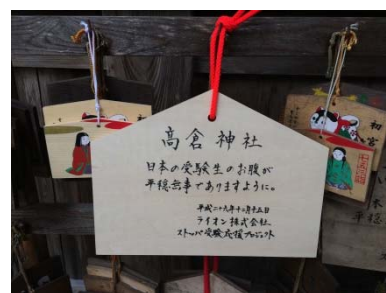 高倉神社
日本の受験生のお腹が
平穏無事でありますように。
平成二十九年十二月十五日
ライオン株式会社
ストッパ受験応援プロジェクト
初宮